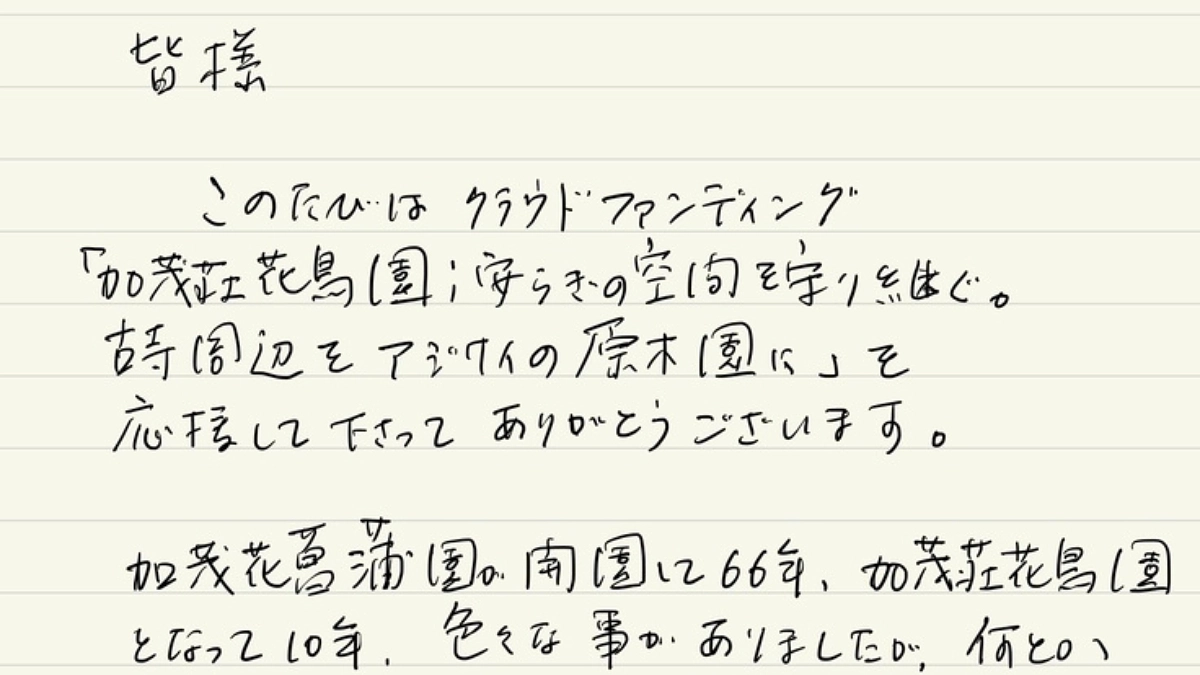 皆様
このたびは クラウドファンディング
「加茂荘花鳥園；安らぎの空間を守り継ぐ。
古寺周辺を アジサイの原木園に」を
応援して下さって ありがとうございます。
加茂花菖蒲園が開園して66年、加茂荘花鳥園
となって10年、色々な事がありましたが、何とか